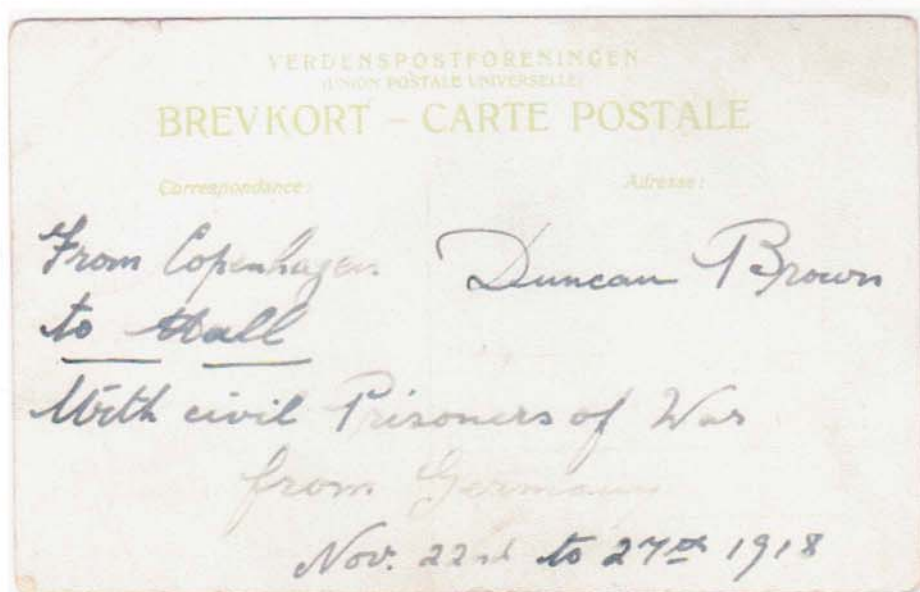 VERDENSPOSTFORENINGEN
(UNION POSTALE UNIVERSELLE)
BREVKORT – CARTE POSTALE
Correspondance: Adresse:
From Copenhagen Duncan Brown
to Hull
With civil Prisoners of War
from Germany
Nov. 22nd to 27th 1918